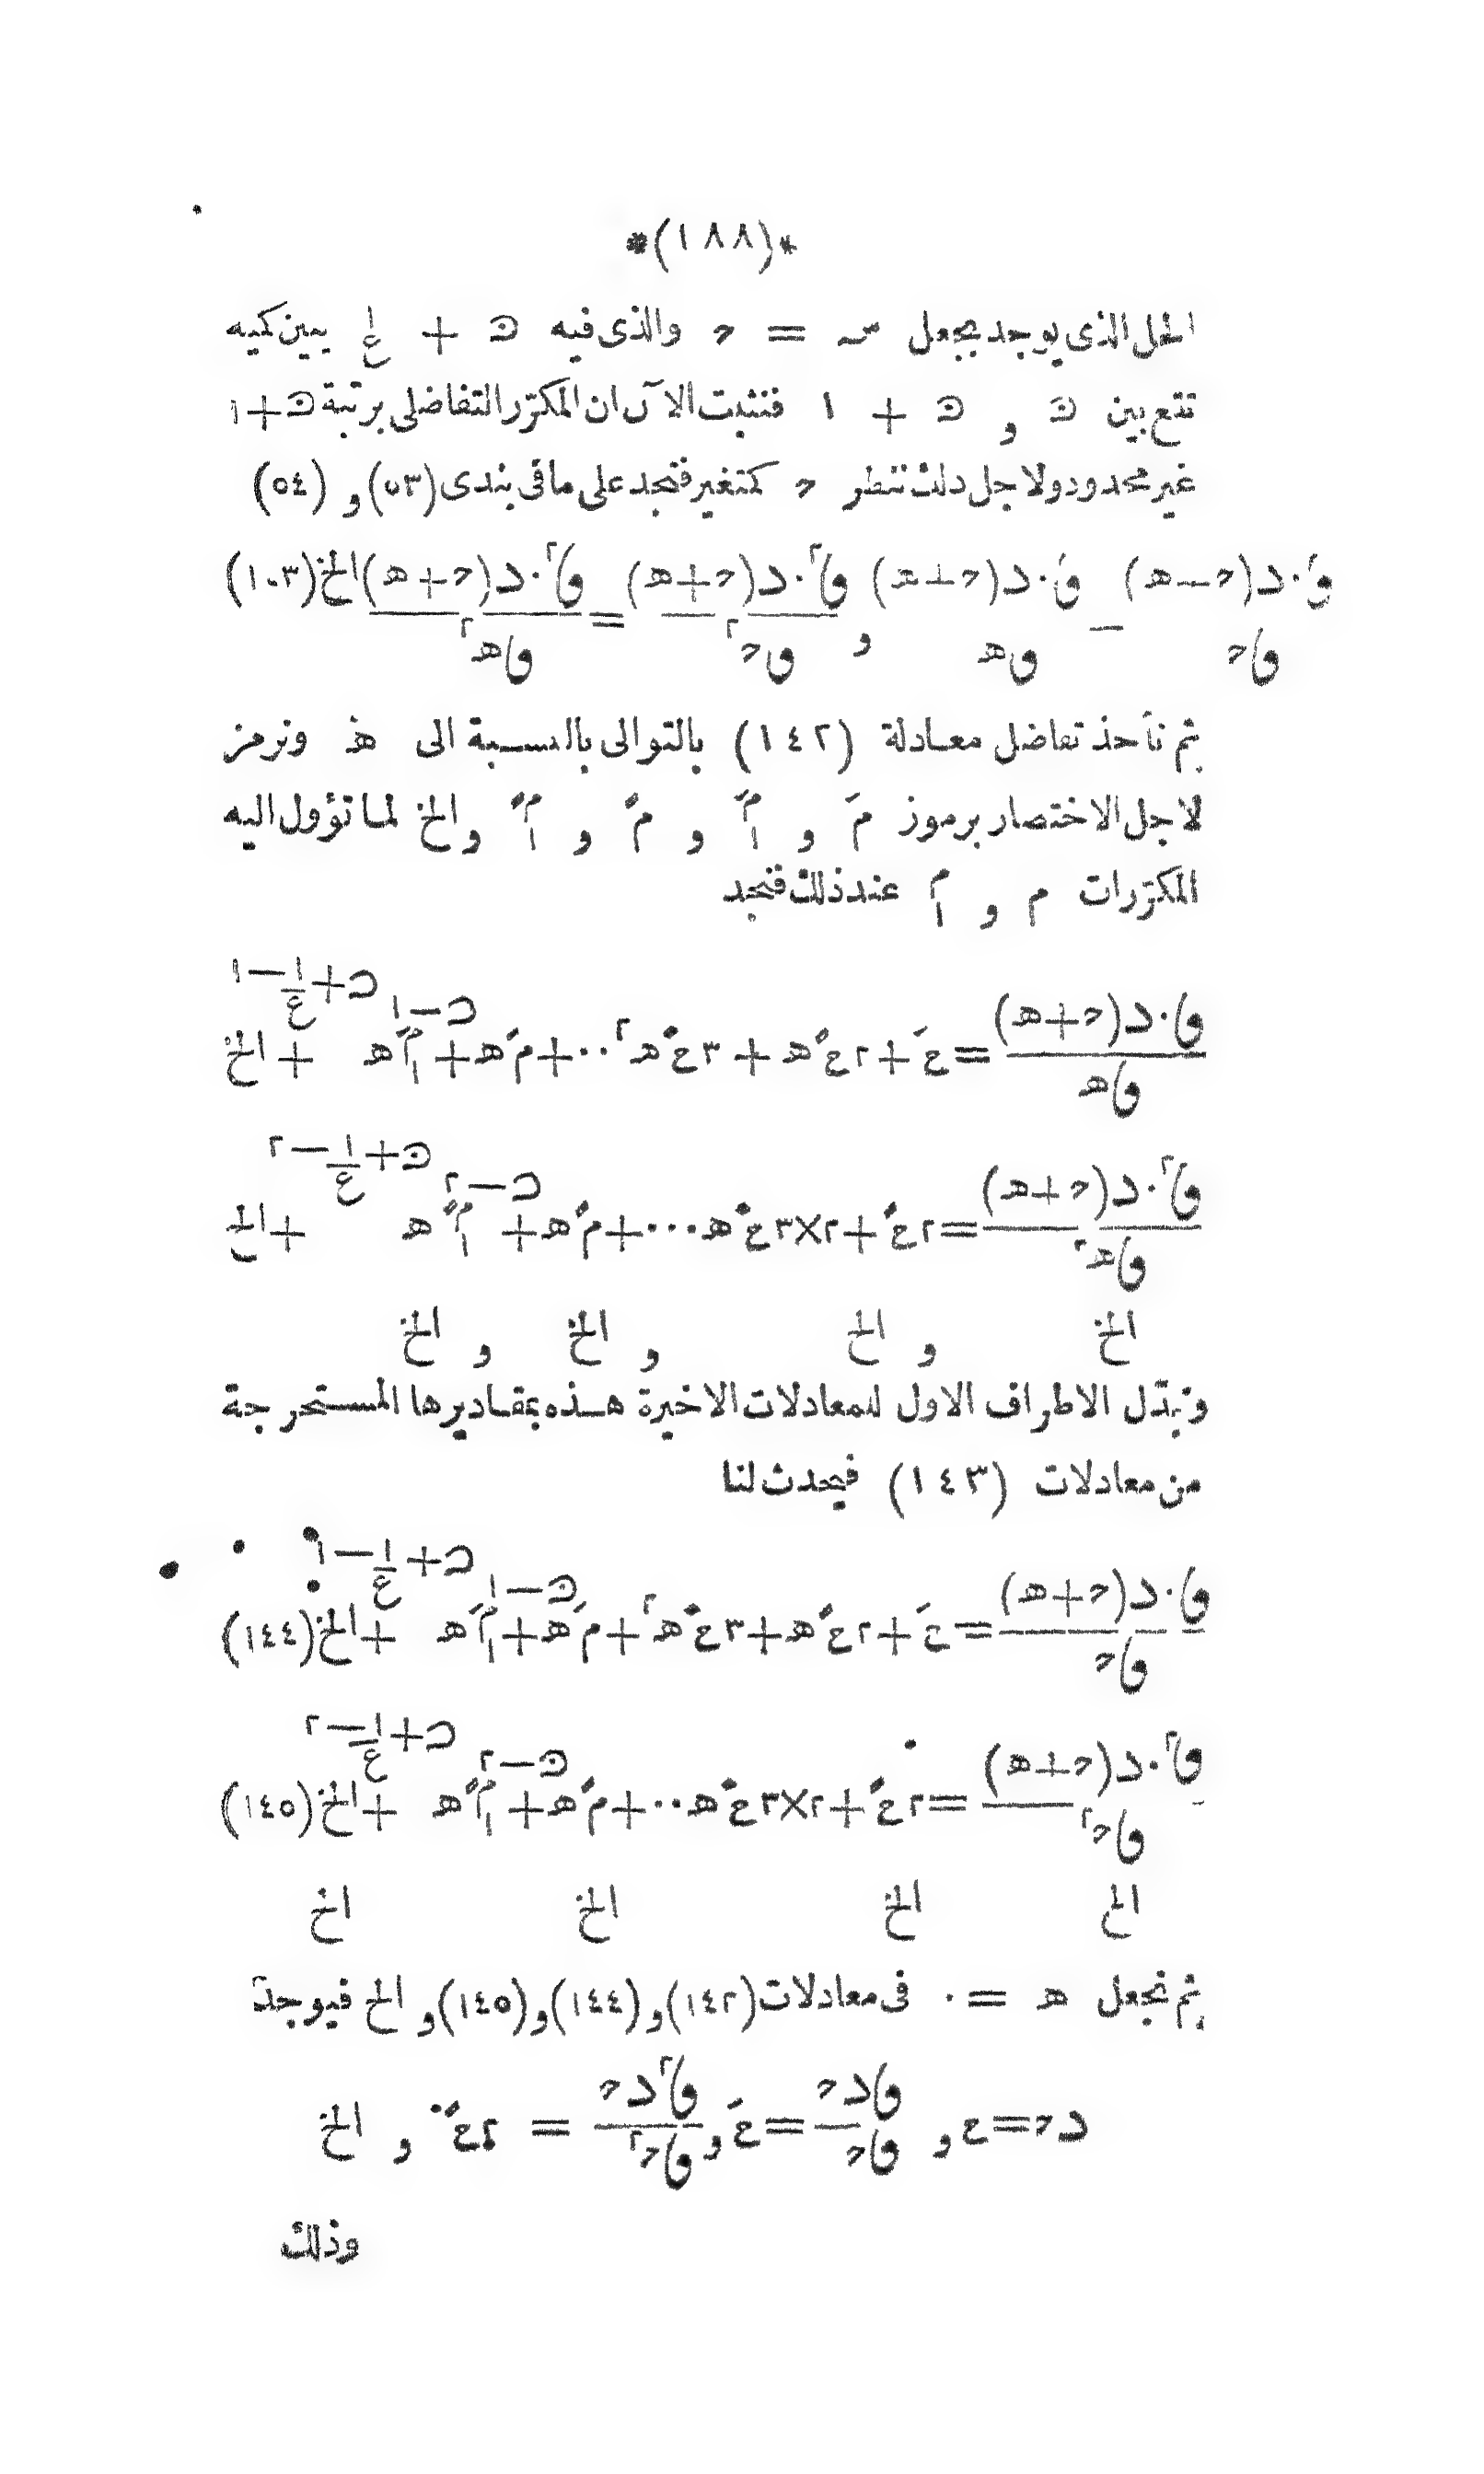 *(١٨٨)*
الحل الذى يوجد بجعل س = ح والذى فيه ن + ١/ع يبين كميه
تقع بين ن و ن + ١ فنثبت الآن ان المكرّر التفاضلى برتبة ن+١
غير محدود ولاجل ذلك ننظر ح كمتغير فنجد على ما فى بندى (٥٣) و (٥٤)
ق.د(ح-ه)/قح = ق.د(ح+ه)/قه و ق٢.د(ح+ه)/قح٢ = ق٢.د(ح+ه)/قه٢ الخ (١٠٣)
ثم نأخذ تفاضل معادلة (١٤٢) بالتوالى بالنسبة الى ه ونرمز
لاجل الاختصار برموز مَ و مَ١ و مً و مً١ و الخ لما تؤول اليه
المكرّرات م و م١ عند ذلك فنجد
ق.د(ح+ه)/قه = عَ + ٢عً ه + ٣ع ه٢ ··· + مَ ه^(ن-١) + مَ١ ه^(ن+١/ع-١) + الخ
ق٢.د(ح+ه)/قه٢ = ٢عً + ٢×٣ع ه ··· + مً ه^(ن-٢) + مً١ ه^(ن+١/ع-٢) + الخ
الخ و الخ و الخ و الخ
ونبدّل الاطراف الاول للمعادلات الاخيرة هذه بمقاديرها المستخرجة
من معادلات (١٤٣) فيحدث لنا
ق.د(ح+ه)/قح = عَ + ٢عً ه + ٣ع ه٢ + مَ ه^(ن-١) + مَ١ ه^(ن+١/ع-١) + الخ (١٤٤)
ق٢.د(ح+ه)/قح٢ = ٢عً + ٢×٣ع ه ·· + مً ه^(ن-٢) + مً١ ه^(ن+١/ع-٢) + الخ (١٤٥)
الخ الخ الخ الخ
ثم نجعل ه = ٠ فى معادلات (١٤٢) و (١٤٤) و (١٤٥) و الخ فيوجد
دح = ع و قدح/قح = عَ و ق٢دح/قح٢ = ٢عً و الخ
وذلك